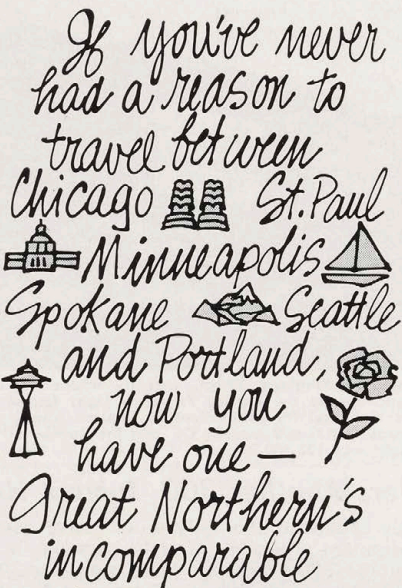 If you've never
had a reason to
travel between
Chicago St. Paul
Minneapolis
Spokane Seattle
and Portland,
now you
have one—
Great Northern's
incomparable